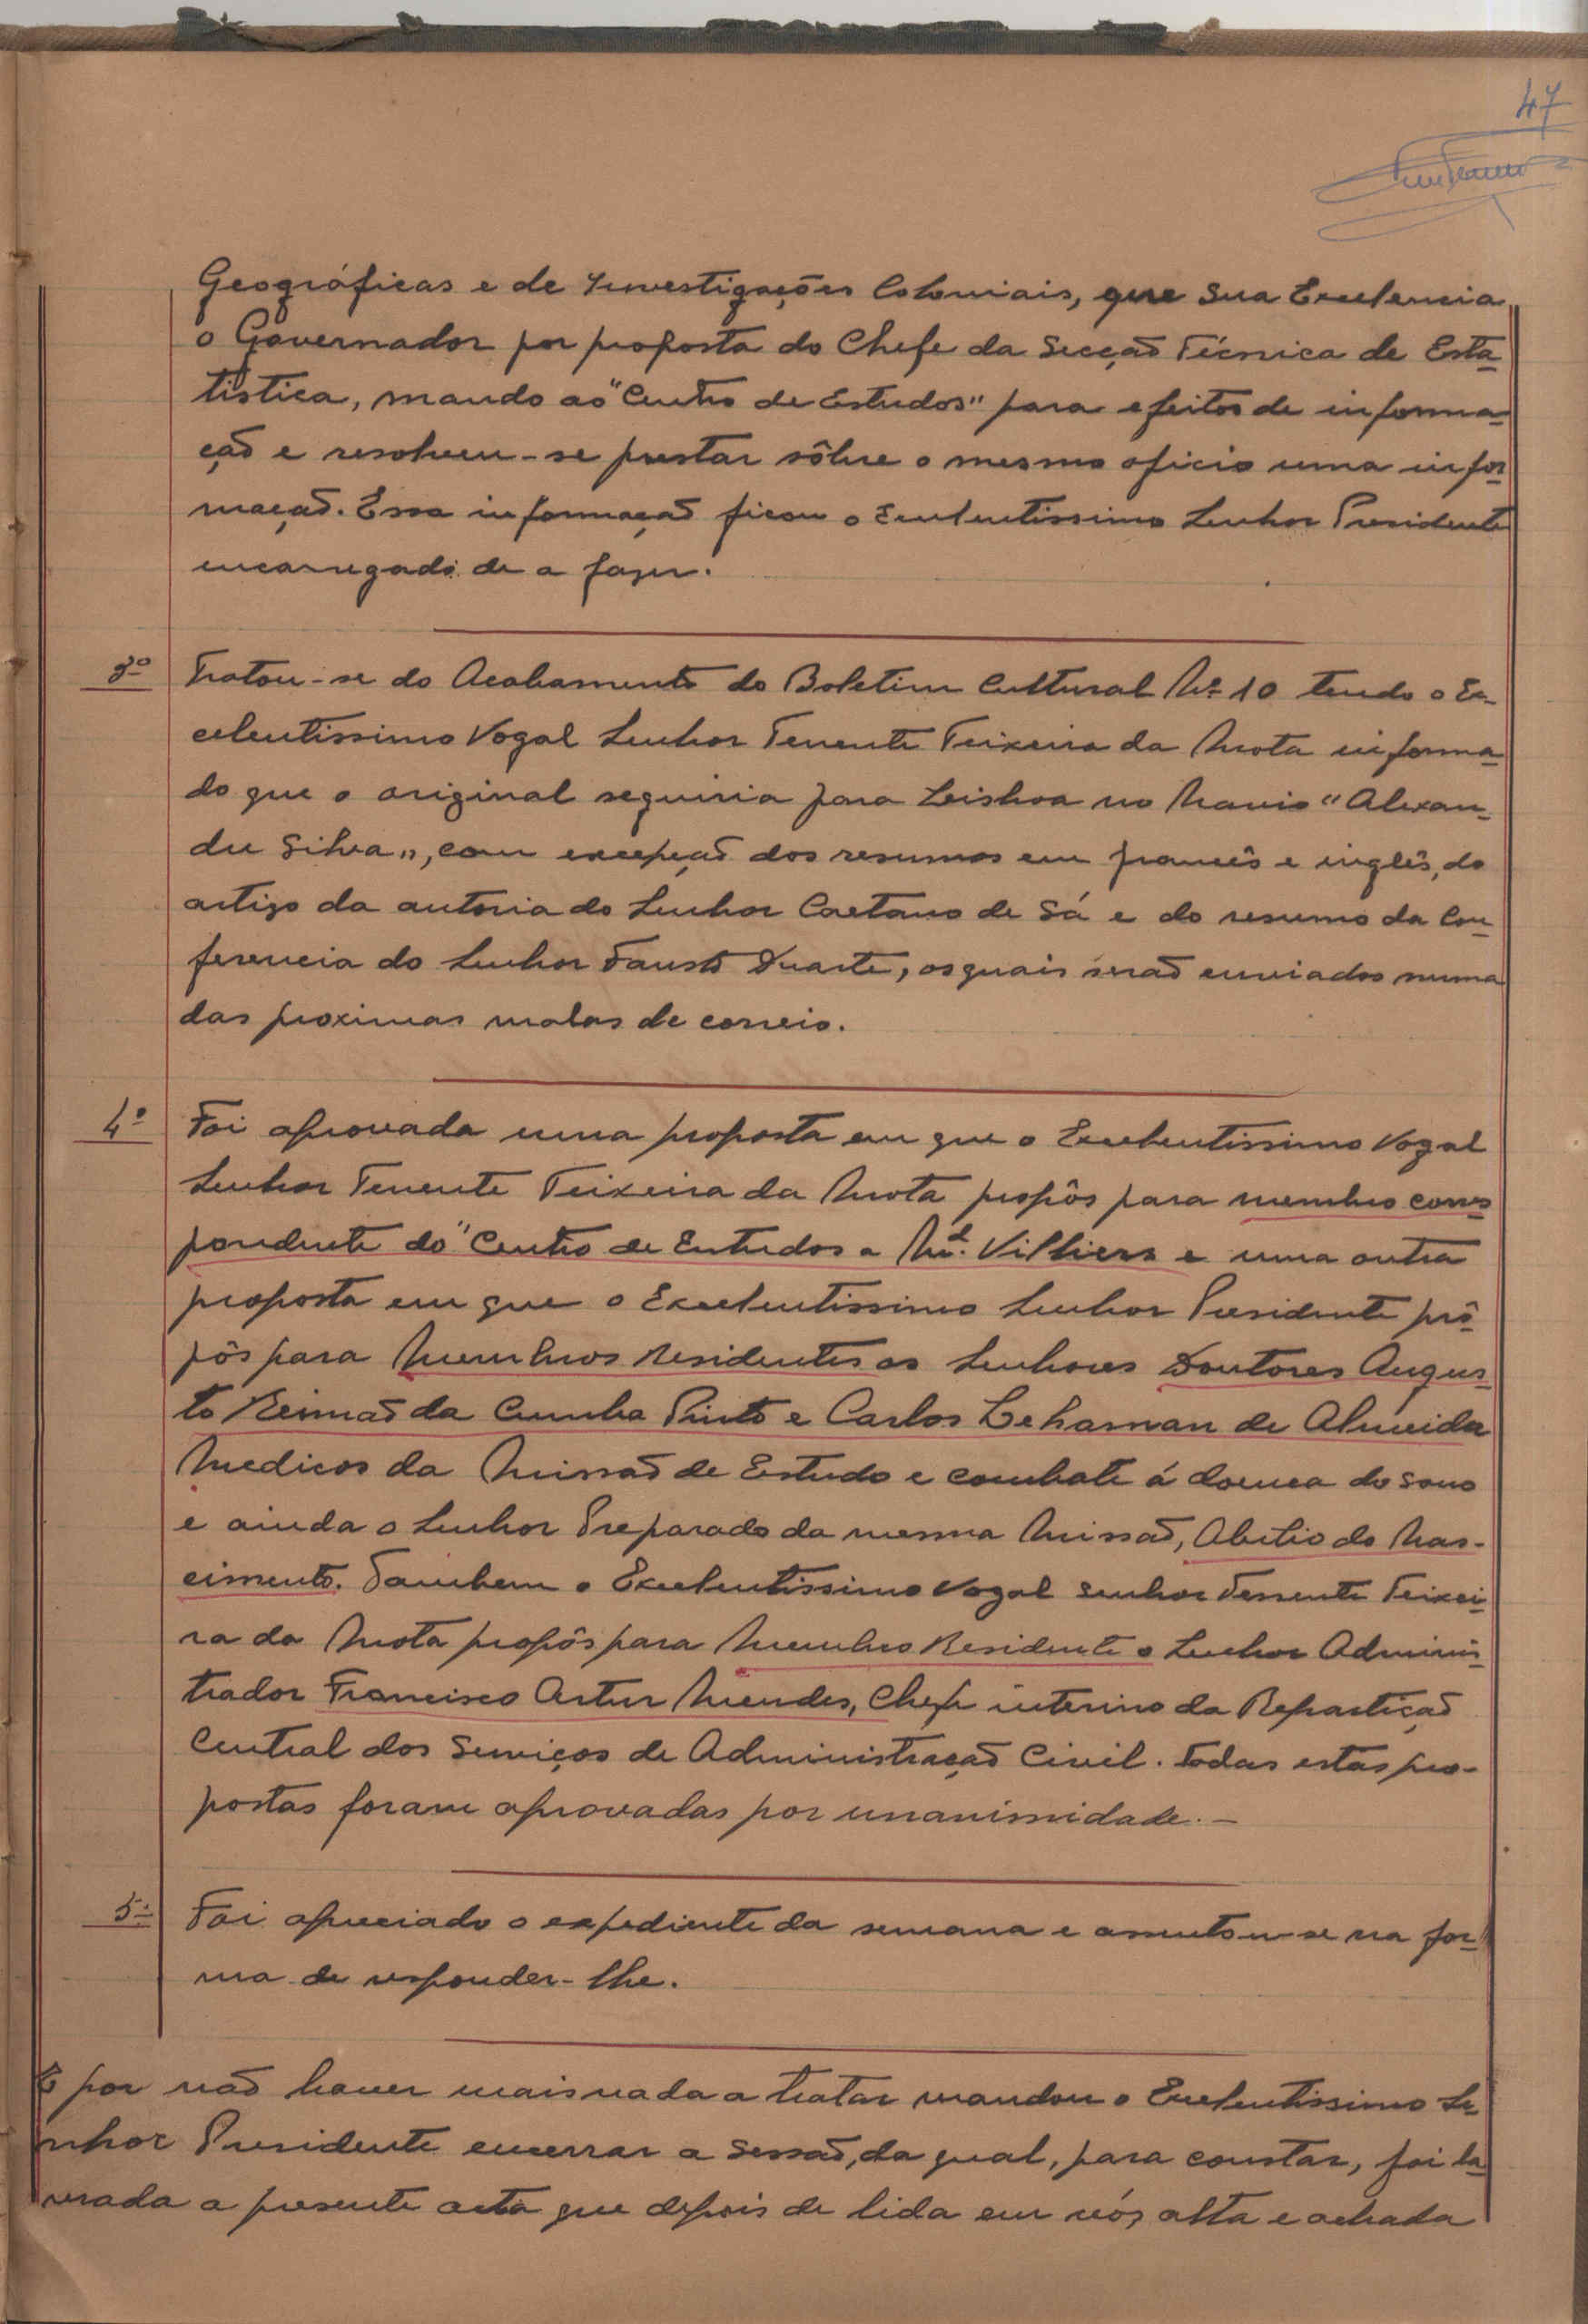 47
Geográficas e de Investigações Coloniais, que Sua Excelencia
o Governador por proposta do Chefe da Secção Técnica de Esta-
tistica, mando ao "Centro de Estudos" para efeitos de informa-
ção e resolveu-se prestar sôbre o mesmo oficio uma infor-
mação. Essa informação ficou o Excelentissimo Senhor Presidente
encarregado de a fazer.
3º Tratou-se do Acabamento do Boletim Cultural Nº 10 tendo o Ex-
celentissimo Vogal Senhor Tenente Teixeira da Mota informa-
do que o original seguiria para Lisboa no Navio "Alexan-
dre Silva", com excepção dos resumos em francês e inglês, do
artigo da autoria do Senhor Caetano de Sá e do resumo da Con-
ferencia do Senhor Fausto Duarte, os quais serão enviados numa
das proximas malas de correio.
4º Foi aprovada uma proposta em que o Excelentissimo Vogal
Senhor Tenente Teixeira da Mota propôs para membro corres-
pondente do "Centro de Estudos a Villiers e uma outra
proposta em que o Excelentissimo Senhor Presidente prô-
pôs para Membros Residentes os Senhores Doutores Augus-
to Reimão da Cunha Pinto e Carlos Lehaman de Almeida
Medicos da Missão de Estudo e combate á doença do sono
e ainda o Senhor Preparado da mesma Missão, Abilio do Nas-
cimento. Tambem o Excelentissimo Vogal Senhor Tenente Teixei-
ra da Mota propôs para Membro Residente o Senhor Adminis-
trador Francisco Artur Mendes, Chefe interino da Repartição
Central dos Serviços de Administração Civil. Todas estas pro-
postas foram aprovadas por unanimidade.-
5º Foi apreciado o expediente da semana e assentou-se na for-
ma de responder-lhe.
E por não haver mais nada a tratar mandou o Excelentissimo Se-
nhor Presidente encerrar a sessão, da qual, para constar, foi la-
vrada a presente acta que depois de lida em vóz alta e achada